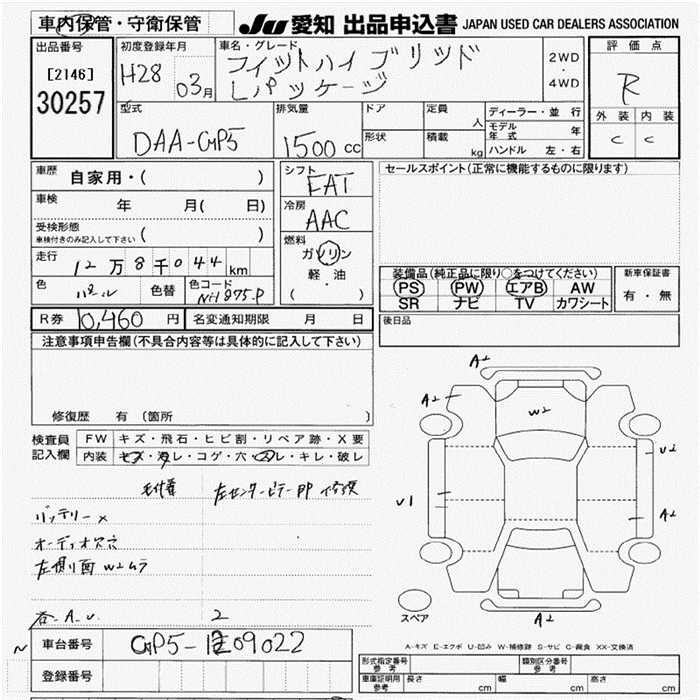 車内保管・守衛保管
JU 愛知 出品申込書 JAPAN USED CAR DEALERS ASSOCIATION
出品番号
[2146]
30257
初度登録年月
H28 03月
車名・グレード
フィットハイブリッド
Lパッケージ
2WD
・
4WD
評価点
R
外装 内装
C C
型式
DAA-GP5
排気量
1500 cc
ドア
形状
定員 人
積載 kg
ディーラー・並行
モデル年式 年
ハンドル 左・右
車歴
自家用・( )
車検
年 月( 日)
受検形態
車検付きのみ記入して下さい ( )
走行
12万8千044km
色
パール
色替
色コード
NH875-P
シフト
FAT
冷房
AAC
燃料
ガソリン
軽・油
( )
セールスポイント(正常に機能するものに限ります)
装備品(純正品に限り○をつけてください)
PS PW エアB AW
SR ナビ TV カワシート
新車保証書
有・無
R券 10,460 円
名変通知期限 月 日
後日品
注意事項申告欄(不具合内容等は具体的に記入して下さい)
修復歴 有(箇所 )
検査員
記入欄
FW キズ・飛石・ヒビ割・リペア跡・X要
内装 キズ・汚レ・コゲ・穴・スレ・キレ・破レ
左センターピラーPP 修復
バッテリー×
オーディオ穴
左側面 W2ムラ
各 A.U. 2
A2
A2
W2
U2
U1
A2
A2
スペア
A-キズ E-エクボ U-凹み W-補修跡 S-サビ C-腐食 XX-交換済
車台番号
GP5-1209022
登録番号
型式指定番号
参考
類別区分番号
参考
車庫証明用
参考
長さ cm
幅 cm
高さ cm